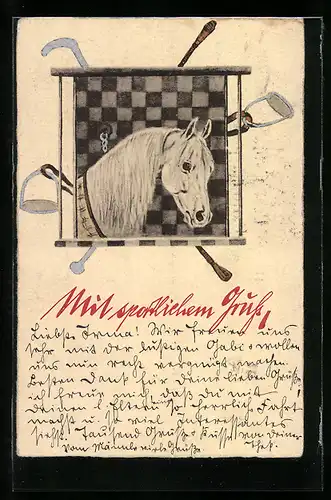 Mit sportlichem Gruß,
Liebste Irma! Wir freuen uns
sehr mit der lustigen Gabe & wollen
uns nun recht vergnügt machen
Besten Dank für Deine lieben Grüße,
ich freue mich daß Du mit
deinen l. Eltern so herrlich Fahrt
machst u. so viel Interessantes
siehst. Tausend Grüße & Kusse von Deiner
Vom Männle viele Grüße.